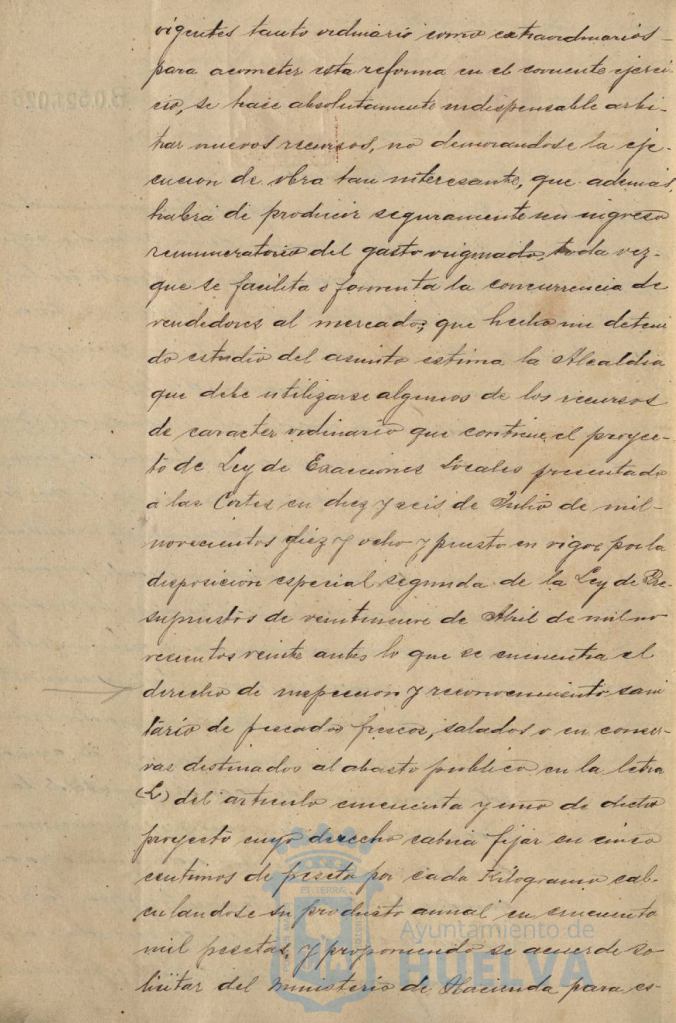 vigentes tanto ordinario como extraordinarios
para acometer esta reforma en el corriente ejerci
cio, se hace absolutamente indispensable arbi-
trar nuevos recursos, no demorandose la eje-
cucion de obra tan interesante, que además,
habrá de producir seguramente un ingreso
remuneratorio del gasto originado, toda vez-
que se facilita o fomenta la concurrencia de
vendedores al mercado; que hecho un deteni
do estudio del asunto estima la Alcaldia
que debe utilizarse algunos de los recursos
de caracter ordinario que contiene el proyec-
to de Ley de Exacciones Locales presentado
á las Cortes en diez y seis de Julio de mil-
novecientos diez y ocho y puesto en vigor por la
disposición especial segunda de la Ley de Pre-
supuestos de veintinueve de Abril de mil no
vecientos veinte antes lo que se encuentra el
derecho de inspeccion y reconocimiento sani
tario de pescados frescos, salados o en conser-
vas destinados al abasto publico en la letra
(L) del articulo cincuenta y uno de dicho
proyecto cuyo derecho cabria fijar en cinco
centimos de peseta por cada Kilogramo cal-
culandose su producto annual en cincuenta
mil pesetas, y proponiendo se acuerde so-
licitar del Ministerio de Hacienda para es-
Ayuntamiento de
HUELVA